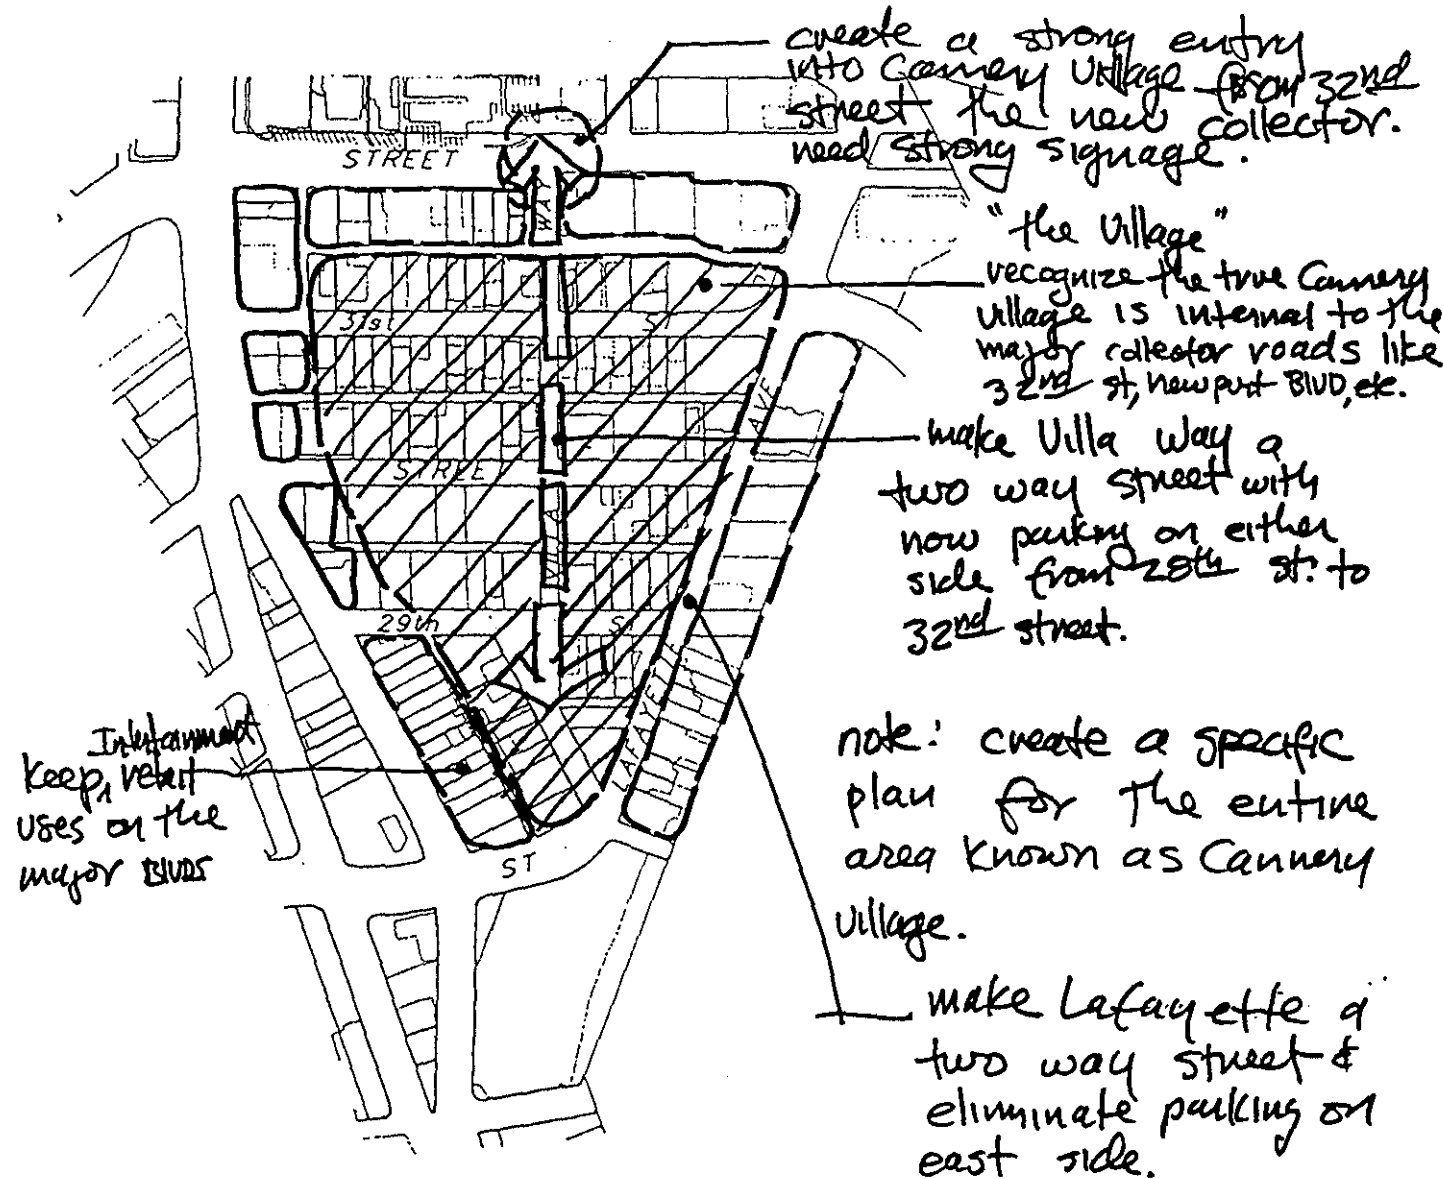 create a strong entry
into Cannery Village from 32nd
street the new collector.
need strong signage.
"the Village"
recognize the true Cannery
Village is internal to the
major collector roads like
32nd st, newport BLVD, etc.
make Villa Way a
two way street with
now parking on either
side from 28th st. to
32nd street.
note: create a specific
plan for the entire
area known as Cannery
Village.
make Lafayette a
two way street &
eliminate parking on
east side.
Entertainment
keep, retail
uses on the
major BLVDS
STREET
WAY
31st
ST
STREET
AVE
29th
ST
LAFAYETTE
ST